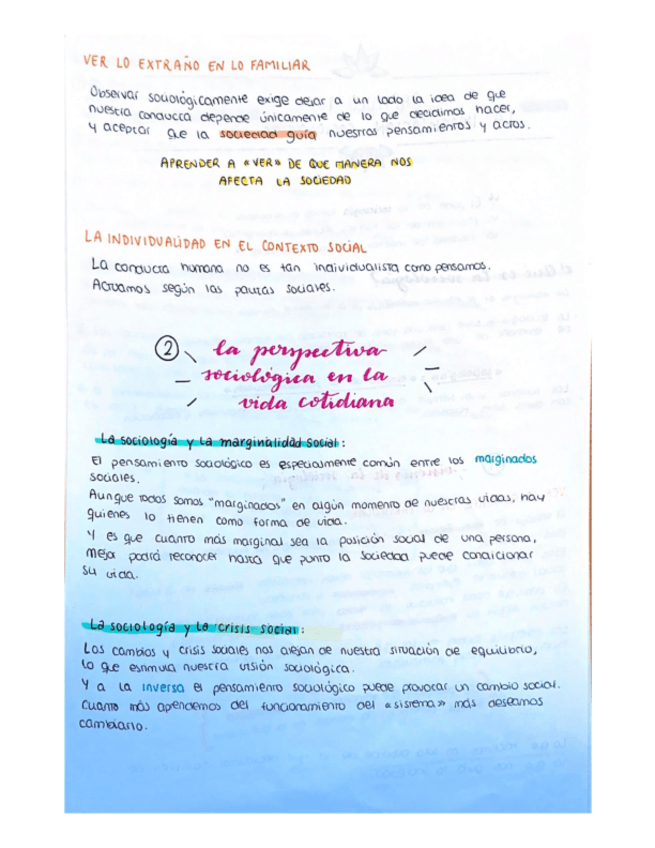 VER LO EXTRAÑO EN LO FAMILIAR
Observar sociológicamente exige dejar a un lado la idea de que
nuestra conducta depende únicamente de lo que decidimos hacer,
y aceptar que la sociedad guía nuestros pensamientos y actos.
APRENDER A «VER» DE QUE MANERA NOS
AFECTA LA SOCIEDAD
LA INDIVIDUALIDAD EN EL CONTEXTO SOCIAL
La conducta humana no es tan individualista como pensamos.
Actuamos según las pautas sociales.
② la perspectiva
sociológica en la
vida cotidiana
La sociología y la marginalidad social:
El pensamiento sociológico es especialmente común entre los marginados
sociales.
Aunque todos somos "marginados" en algún momento de nuestras vidas, hay
quienes lo tienen como forma de vida.
Y es que cuanto más marginal sea la posición social de una persona,
mejor podrá reconocer hasta que punto la sociedad puede condicionar
su vida.
La sociología y la crisis social:
Los cambios y crisis sociales nos alejan de nuestra situación de equilibrio,
lo que estimula nuestra visión sociológica.
Y a la inversa el pensamiento sociológico puede provocar un cambio social.
Cuanto más aprendemos del funcionamiento del «sistema» más deseamos
cambiarlo.